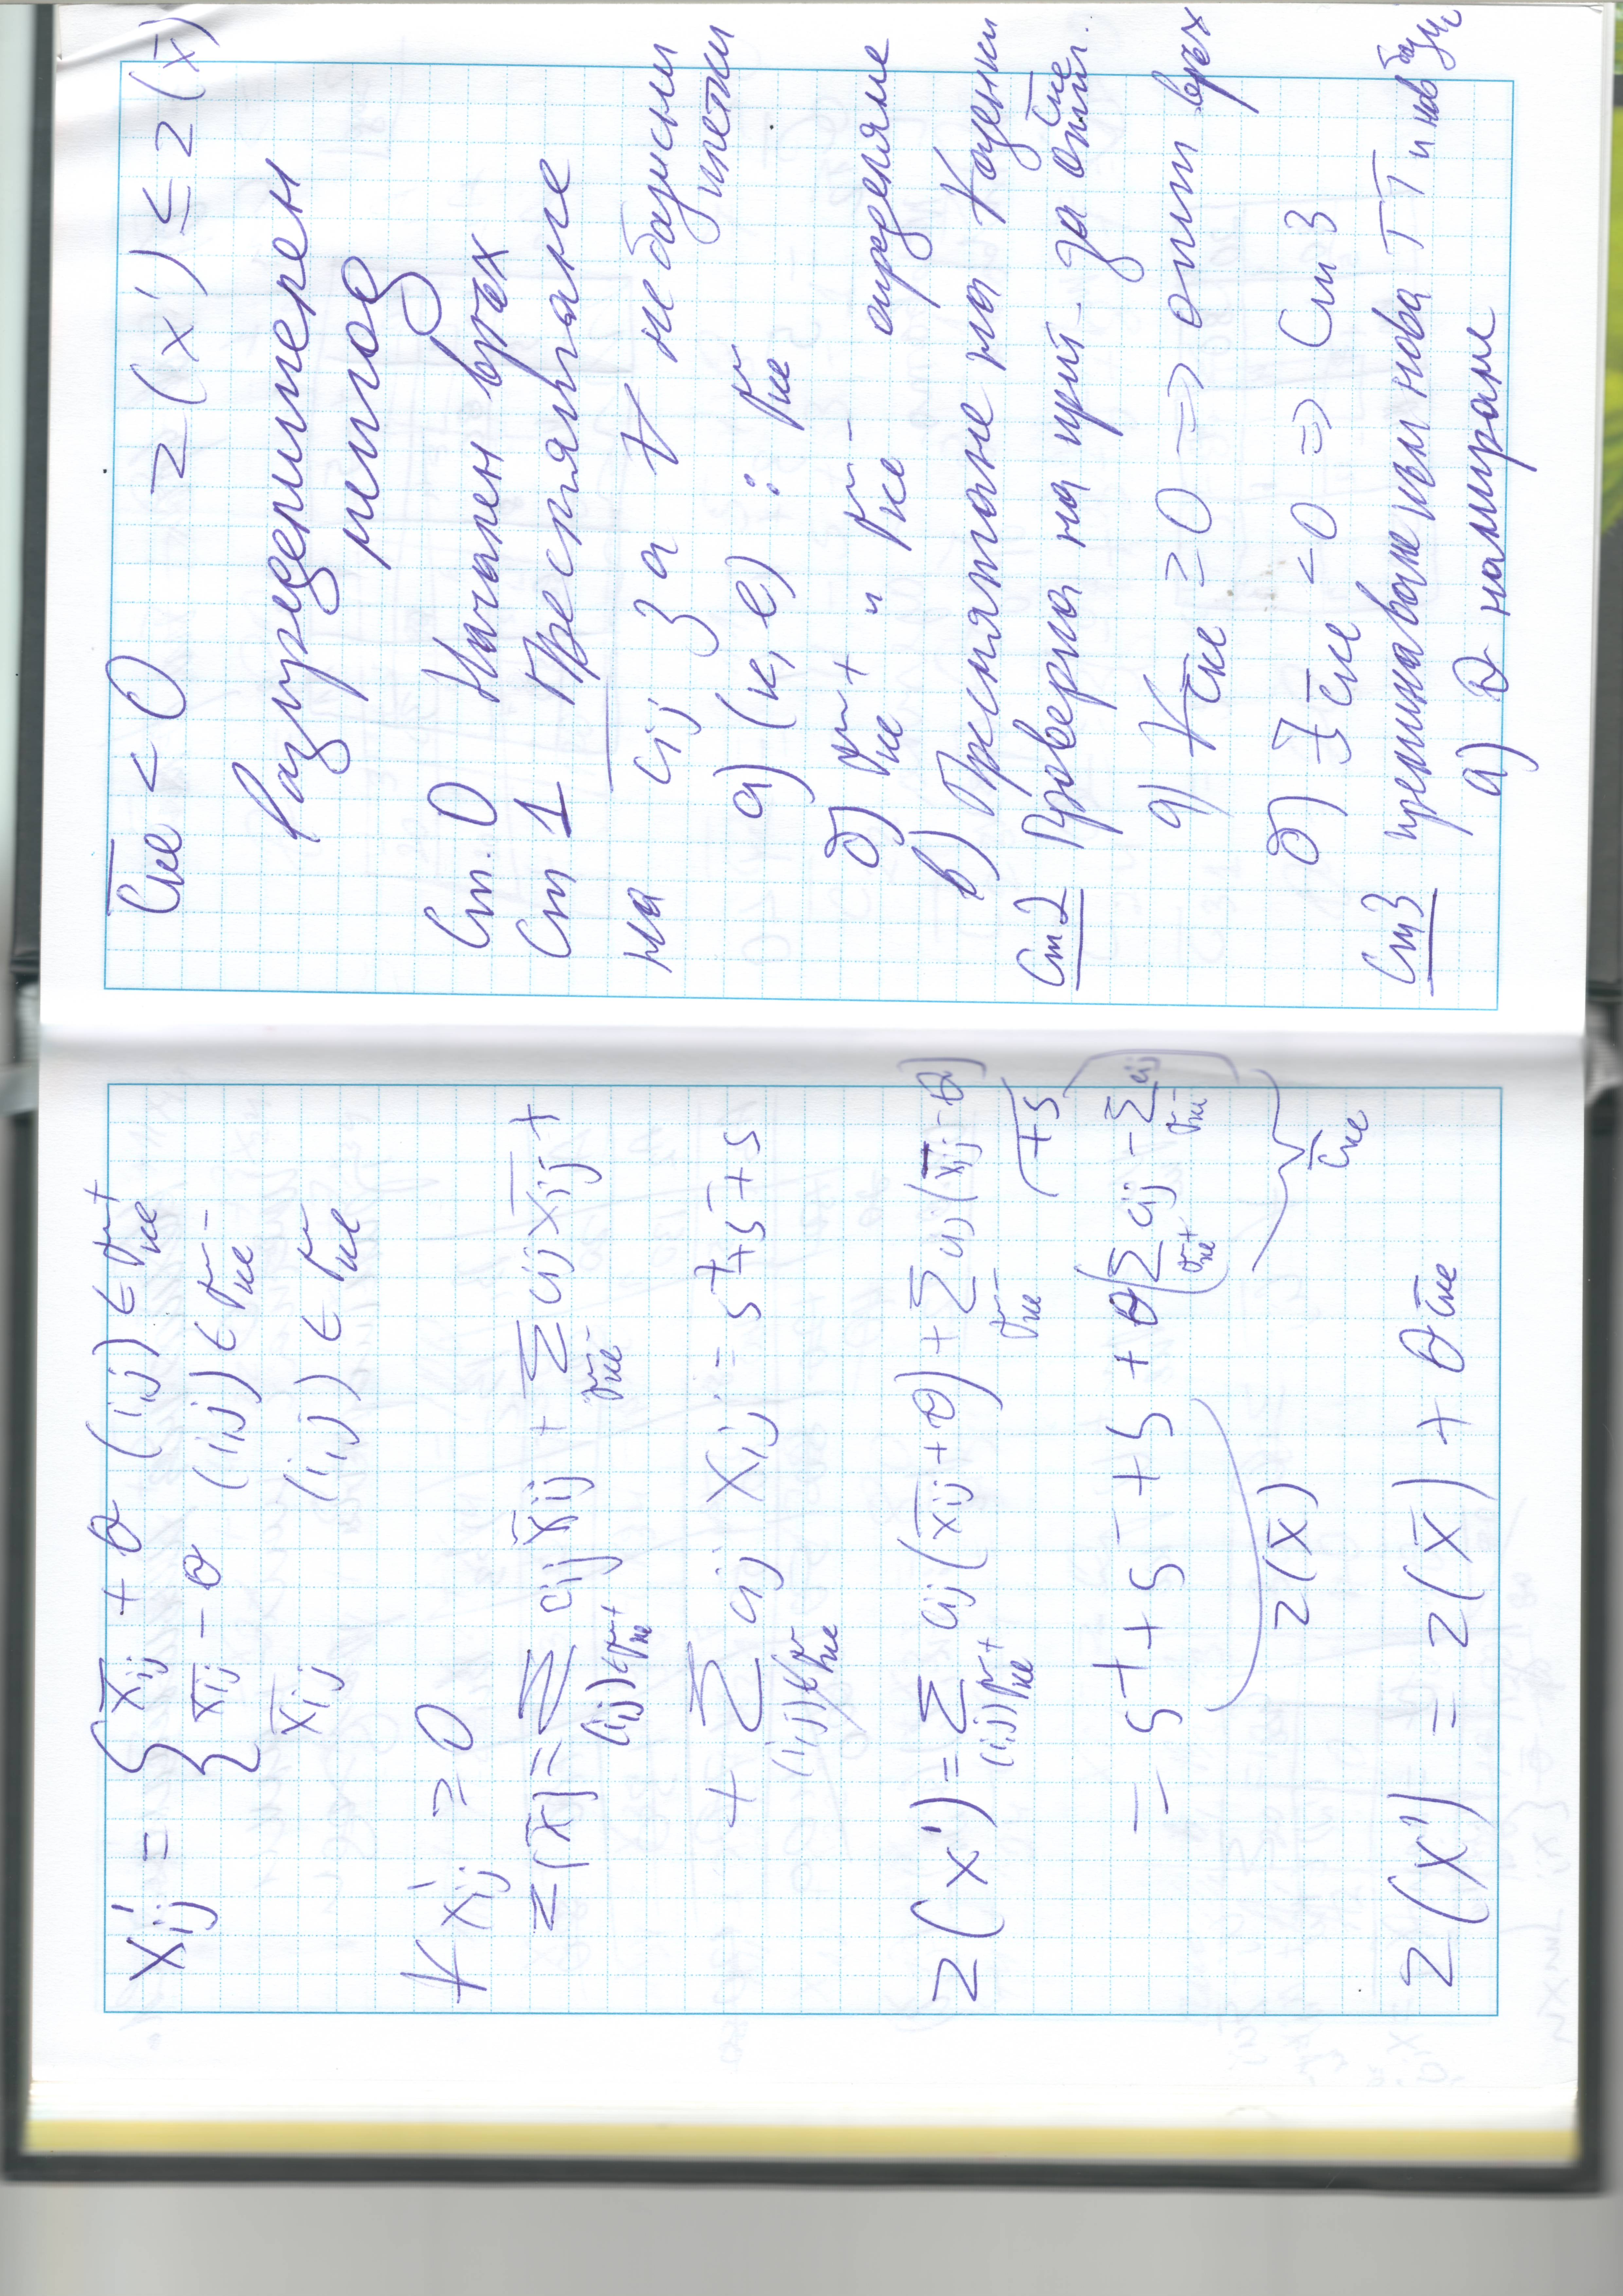 x'ij = { x̄ij + θ (i,j) ∈ γкe+
x̄ij - θ (i,j) ∈ γкe-
x̄ij (i,j) ∈ γкe
∀ x'ij ≥ 0
z(x̄) = Σ cij x̄ij + Σ cij x̄ij +
(i,j)∈γкe+ γкe-
+ Σ cij xij = s+ + s- + s
(i,j)∉γкe
z(x') = Σ cij (x̄ij + θ) + Σ cij (x̄ij - θ)
(i,j)γкe+ γкe- + s
= s+ + s- + s + θ(Σ cij - Σ cij
γкe+ γкe-
z(x̄) c̄кe
z(x') = z(x̄) + θ c̄кe
c̄кe < 0 z(x') ≤ z(x̄)
Разпределителен
метод
Ст. 0 Начален връх
Ст 1 Пресмятане
на cij за ∀ небазисни
клетки
а) (к,e) : γкe
б) γкe+ и γкe- определяне
в) Пресмятане на ∀ оценки
c̄кe
Ст2 Проверка на крит. за опт.
а) ∀ c̄кe ≥ 0 => опт връх
б) ∃ c̄кe < 0 => Ст3
Ст3 преминаване към нова TT и нов
а) θ намиране